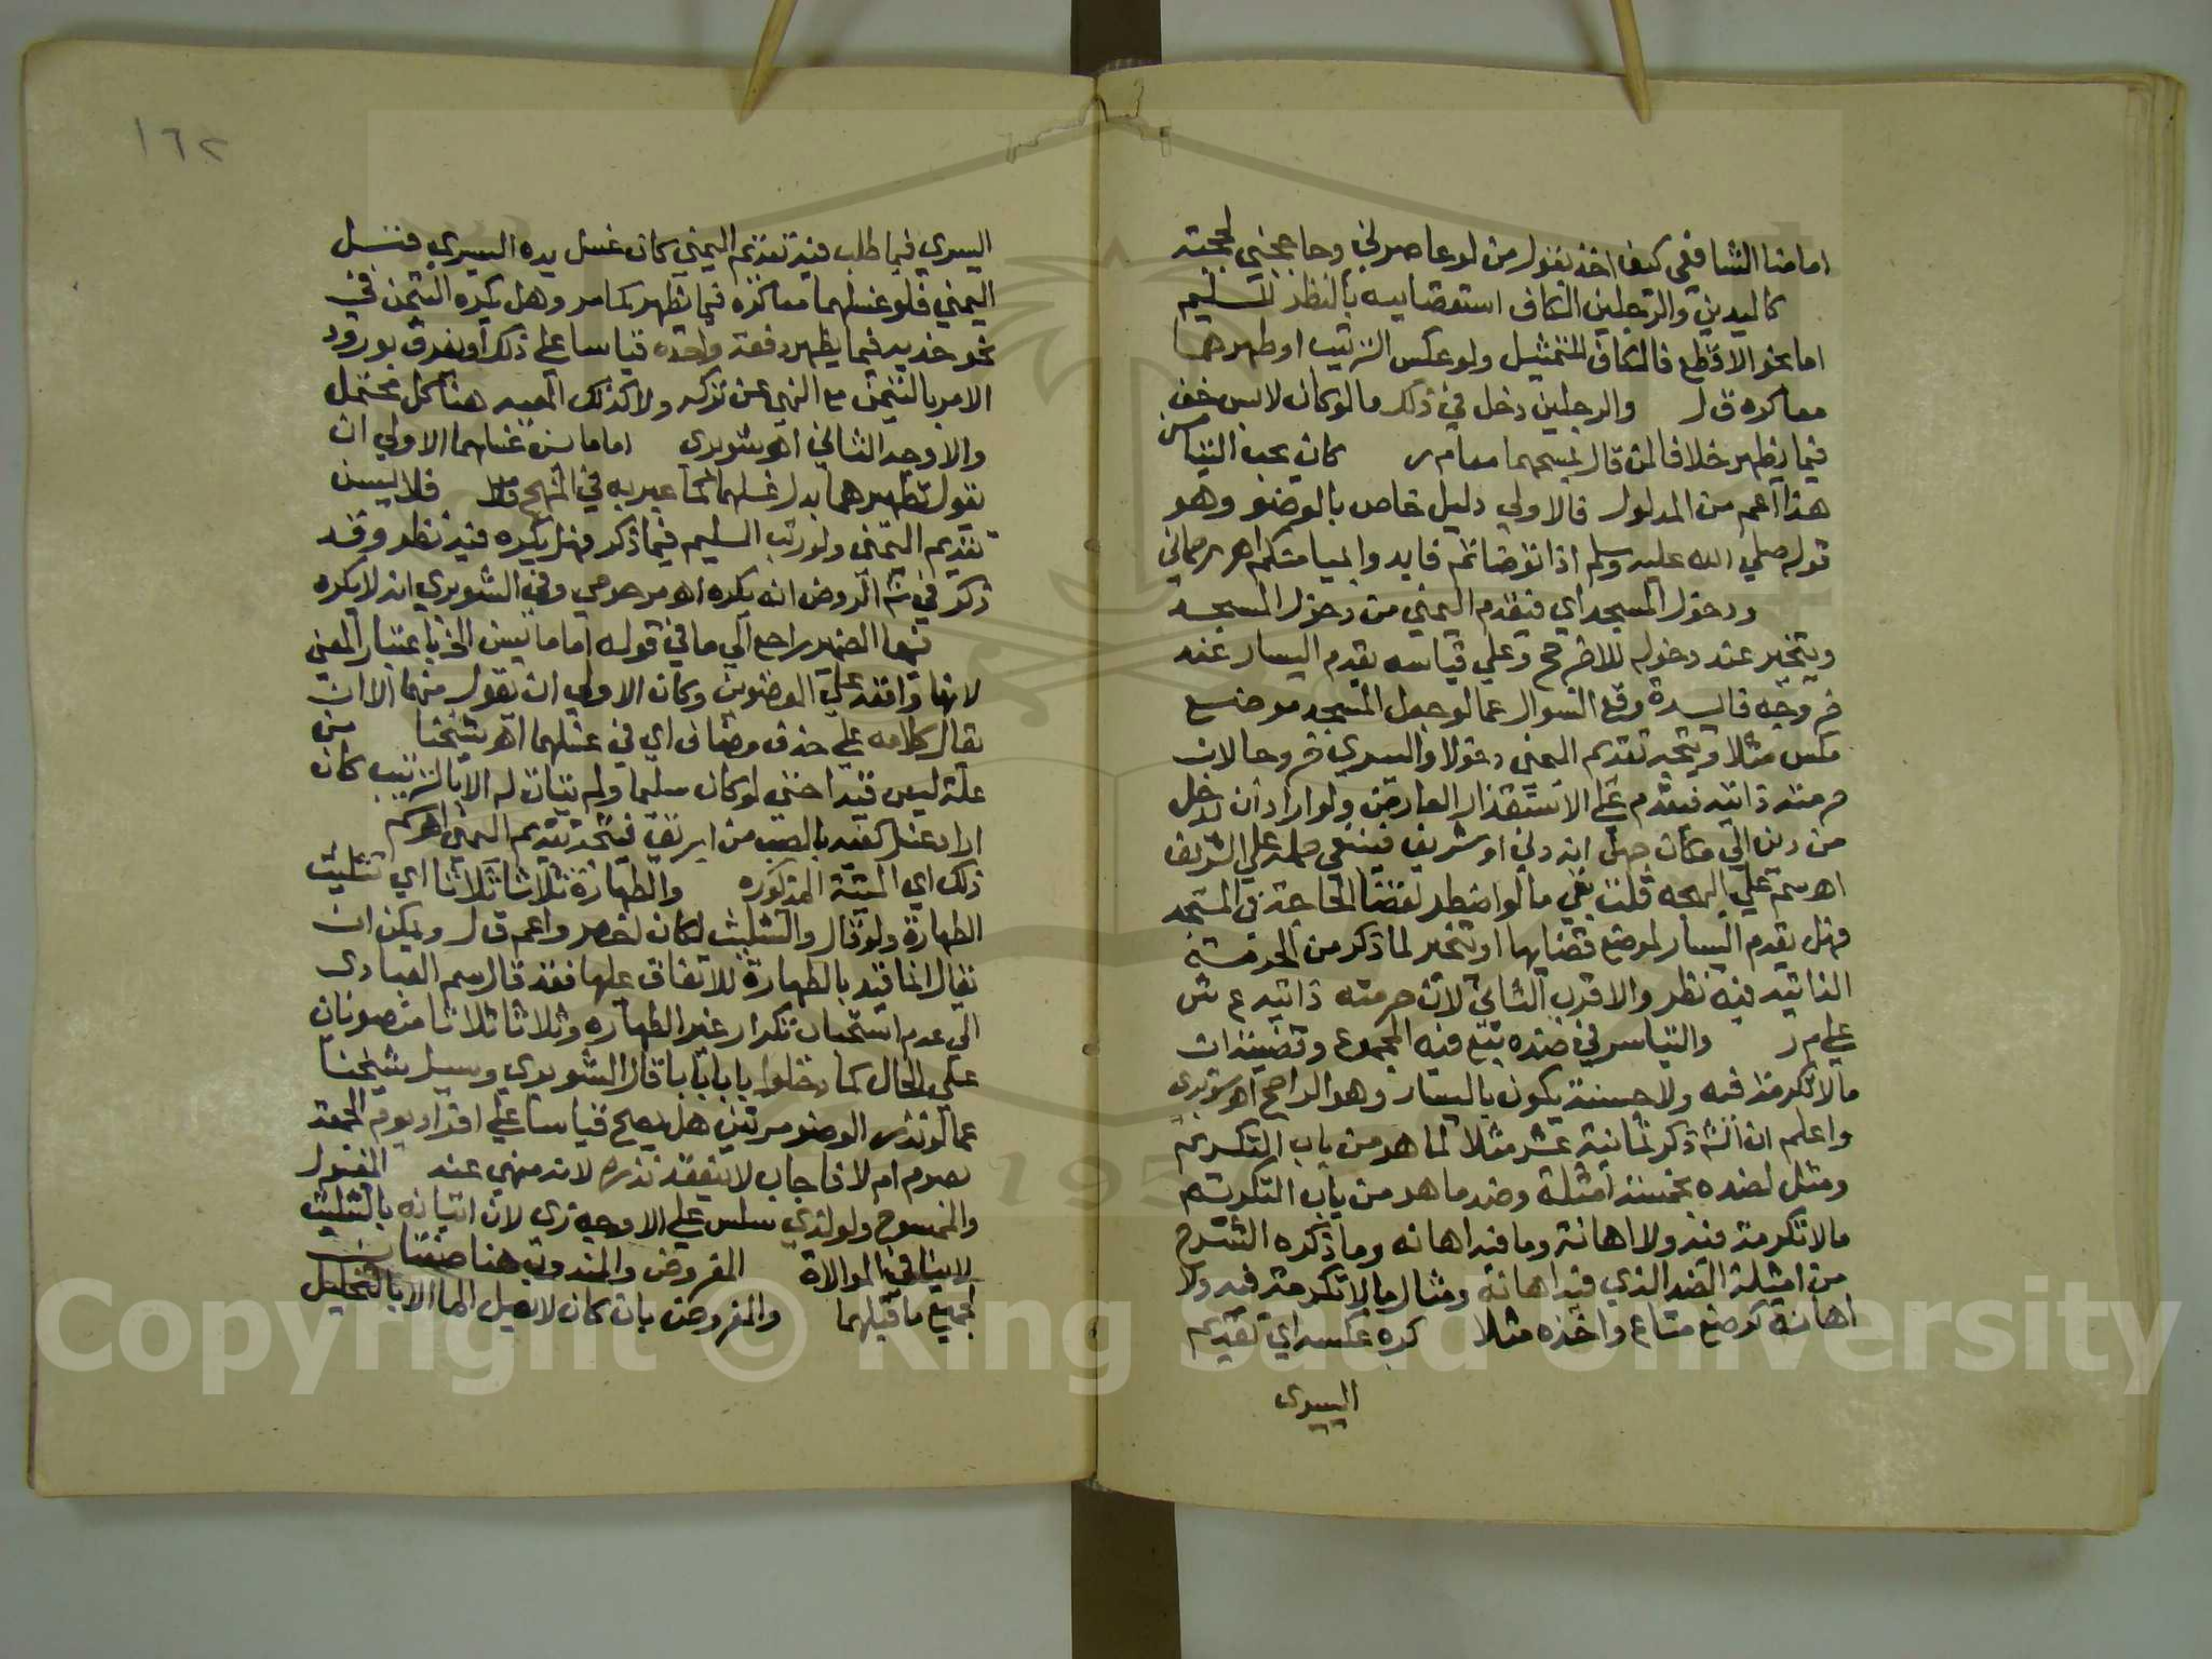 امامنا الشافعى كيف اخذ بقول من لو عاصرني وحاججني لحججته
كاليدين والرجلين الكاف استقصاييه بالنظر للسليم
اما نحو الاقطع فالكاف للتمثيل ولو عكس الترتيب او طهرهما
معا كره ق ل والرجلين دخل في ذلك ما لو كان لابس خف
فيما يظهر خلافا لمن قال يمسحهما معا م ر كان يحب التيامن
هذا اعم من المدلول فالاولي دليل خاص بالوضو وهو
قوله صلي الله عليه وسلم اذا توضاتم فابدوا بميامنكم اهـ رحماني
ودخول المسجد اي فيقدم اليمني من دخول المسجد
ويتخير عند دخوله للاضرحة وعلي قياسه يقدم اليسار عند
خروجه فايدة وقع السوال عما لو جعل المسجد موضع
مكس مثلا ويتجه تقديم اليمني دخولا واليسري خروجا لان
حرمته ذاتيه فيقدم علي الاستقذار العارض ولو اراد ان يدخل
من دني الي مكان جهل انه دني او شريف فينبغي حمله علي الشريف
اهـ سم علي البهجه قلت بقي ما لو اضطر لقضا الحاجة في المسجد
فهل يقدم اليسار لموضع قضايها او يتخير لما ذكر من الحرمة
الذاتيه فيه نظر والاقرب الثاني لان حرمته ذاتيه ع ش
علي م ر والتياسر في ضده تبع فيه المجموع وقضيته ان
ما لا تكرمة فيه ولا خسة يكون باليسار وهو الراجح اهـ شوبري
واعلم ان الش ذكر ثمانية عشر مثلا لما هو من باب التكريم
ومثل لضده بخمسة امثلة وضد ما هو من باب التكريم
ما لا تكرمة فيه ولا اهانة وما فيه اهانه وما ذكره الشرح
من امثلة الضد الذي فيه اهانة ومثال ما لا تكرمة فيه ولا
اهانة كوضع متاع واخذه مثلا كره عكسه اي تقديم
اليسرى
١٦٢
اليسري فيما طلب فيه تقديم اليمني كان غسل يده اليسري قبل
اليمني فلو غسلهما معا كره فيما يظهر كما مر وهل يكره التيمن في
نحو خديه فيما يطهر دفعة واحده قياسا علي ذلك او يفرق بورود
الامر بالتيمن مع النهي عن تركه ولا كذلك المعيه هنا كل محتمل
والاوجه الثاني اهـ شوبري اما ما يسن غسلهما الاولي ان
يقول تطهيرهما بدل غسلهما كما عبر به في المنهج ق ل فلا يسن
تقديم اليمني ولو رتب السليم فيما ذكر فهل يكره فيه نظر وقد
ذكر في ش الروض انه يكره اهـ مرحومي وفي الشوبري انه لا يكره
فيها الضمير راجع الي ما في قوله اما ما يسن الخ باعتبار المعني
لانها واقعة علي العضوين وكان الاولي ان يقول فيهما الا ان
يقال كلامه علي حذف مضاف اي في غسلهما اهـ شيخنا من
علة ليس قيدا حتي لو كان سليما ولم يتات له الا بالترتيب كان
اراد غسل كفيه بالصب من ابريق فيتجه تقديم اليمني اهـ
ذلك اي السنة المذكوره والطهارة ثلاثا ثلاثا اي تثليث
الطهارة ولو قال والتثليث لكان اخصر واعم ق ل ويمكن ان
يقال انما قيد بالطهارة للاتفاق عليها فقد قال سم العبادى
الي عدم استحباب تكرار غير الطهاره وثلاثا ثلاثا منصوبان
علي الحال كما دخلوا بابا بابا قال الشوبري وسيل شيخنا
عما لو نذر الوضو مرتين هل يصح قياسا علي افراد يوم الجمعة
بصوم ام لا فاجاب لا ينعقد نذره لانه منهي عنه المغسول
والممسوح ولو لذي سلس علي الاوجه زى لان اتيانه بالتثليث
لا ينافي الموالاة المفروض والمندوب هنا صفتان
لجميع ما قبلهما والمفروض بان كان لا يصل الما الا بالتخليل